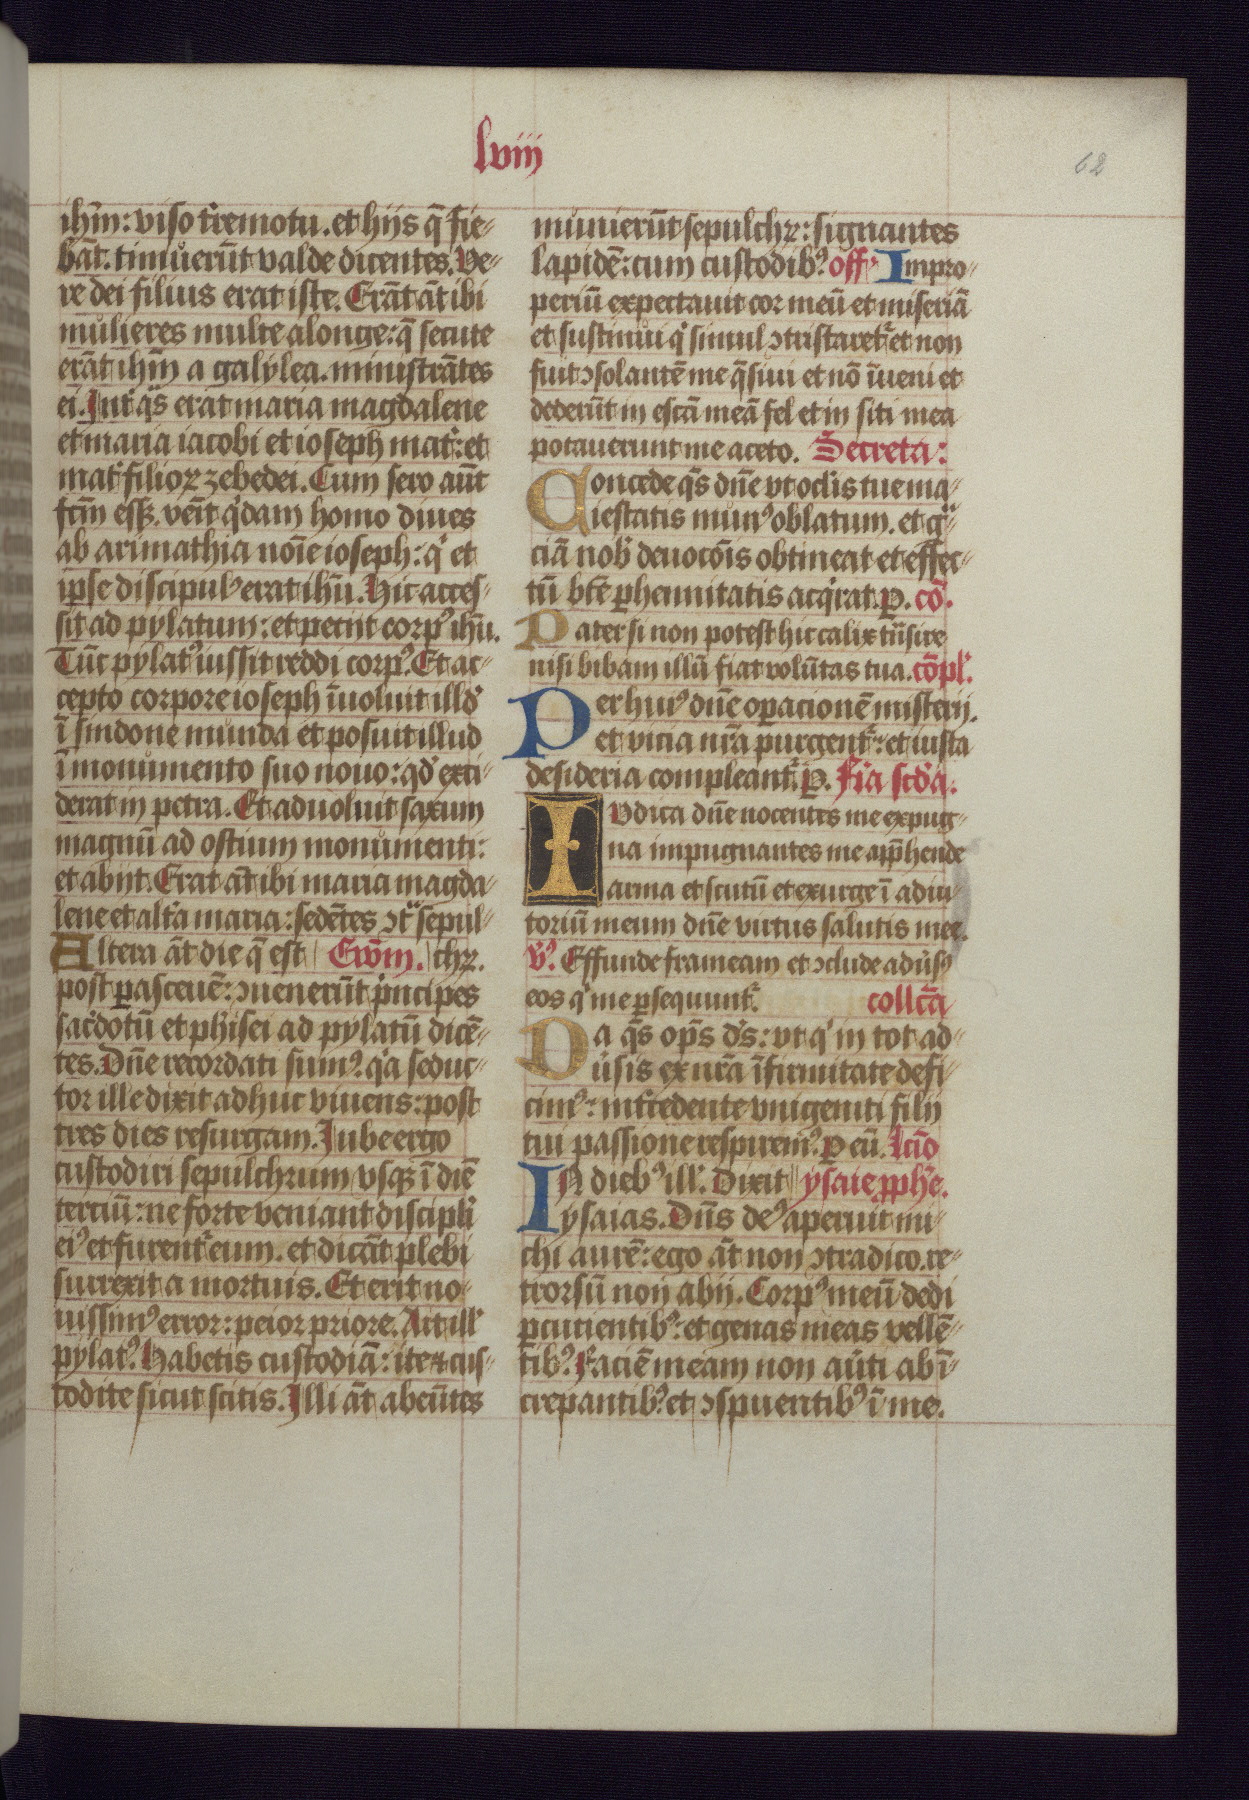 lviii
62
ihm̄: viso t̉remotu. et hijs q̄ fie-
bāt: timůerūt valde dicentes. Ve-
re dei filius erat iste. Erāt āt ibi
můlieres multe alonge: q̄ secute
erāt ihm̄ a galÿlea. ministrātes
ei. Int̉ q̄s erat maria magdalene
et maria iacobi et ioseph mat̉: et
mat̉ filioꝝ zebedei. Cum sero aūt
fc̄m esſꝫ. ven̄it q̉dam homo diues
ab arimathia nōie ioseph: q̉ et
ip̄se discipulꝰ erat ihū. Hic acces-
sit ad pylatum: et petiit corpꝰ ihū.
Tūc pylatꝰ iussit reddi corpꝰ. Et ac-
cepto corpore ioseph īuoluit illd̉
ī sindone můnda et posuit illud
ī monůmento suo nouo: qd̉ exci-
derat in petra. Et aduoluit saxum
magnū ad ostium monůmenti:
et abijt. Erat āt ibi maria magda-
lene et alt̉a maria: sedētes ↄt̉ sepul-
Altera āt die q̄ est Ewm̄. chꝝ.
post ꝑasceuē: ↄuenerūt p̉ncipes
sac̉dotū et phisei ad pylatū dicē-
tes. Dn̄e recordati sumꝰ. q̉a seduc-
tor ille dixit adhuc viuens: post
tres dies resurgam. Iube ergo
custodiri sepulchrum vsqꝫ ī diē
terciū: ne forte veniant discipl̉i
eiꝰ et furent̉ eum. et dicāt plebi
surrexit a mortuis. Et erit no-
uissimꝰ error: peior priore. Ait ill̉
pylatꝰ. Habetis custodiā: ite ⁊ cus-
todite sicut scitis. Illi āt abeūtes
můnierūt sepulchꝝ: signantes
lapidē: cum custodibꝰ. off̉ Impro-
periū expectauit cor meū et miseriā
et sustinůi q̉ simul ↄtristaret̉ et non
fuit ↄsolantē me q̄siui et nō īueni et
dederūt in escā meā fel et in siti mea
potauerunt me aceto. Secreta:
Concede q̄s dn̄e vt ocl̉is tue ma-
iestatis munꝰ oblatum. et gr̄-
ciā nob̉ deuocōis obtineat et effec-
tū bt̄e ꝑhennitatis acq̉rat. P. cō.
Pater si non potest hic calix tn̄sire
nisi bibam illū fiat volūtas tua. cōpl̉.
Per huiꝰ dn̄e oꝑacionē misterij.
et vicia nr̄a purgent̉: et iusta
desideria compleant̉. P. Fīa scd̉a.
IVdica dn̄e nocentes me expug-
na impugnantes me app̄hende
arma et scutū et exurge ī adiu-
toriū meum dn̄e virtus salutis mee.
v̉ꝰ. Effunde frameam et ↄclude adůsꝰ
eos q̉ me ꝑsequunt̉. collc̄ā
Da q̄s op̄s ds̉: vt q̉ in tot ad-
ůsis ex nr̄a īfirmitate defi-
cimꝰ: int̉cedente vnigeniti filij
tui passione respiremꝰ. P eū. Lc̄io
IN diebꝰ ill̉. Dixit ysaie ꝓphē.
ysaias. Dn̄s deꝰ aperuit mi-
chi aurē: ego āt non ↄtradico. re-
trorsū non abij. Corpꝰ meū dedi
ꝑcucientibꝰ: et genas meas vellē-
tibꝰ. Faciē meam non aůti ab ī-
crepantibꝰ. et ↄspuentibꝰ ī me.